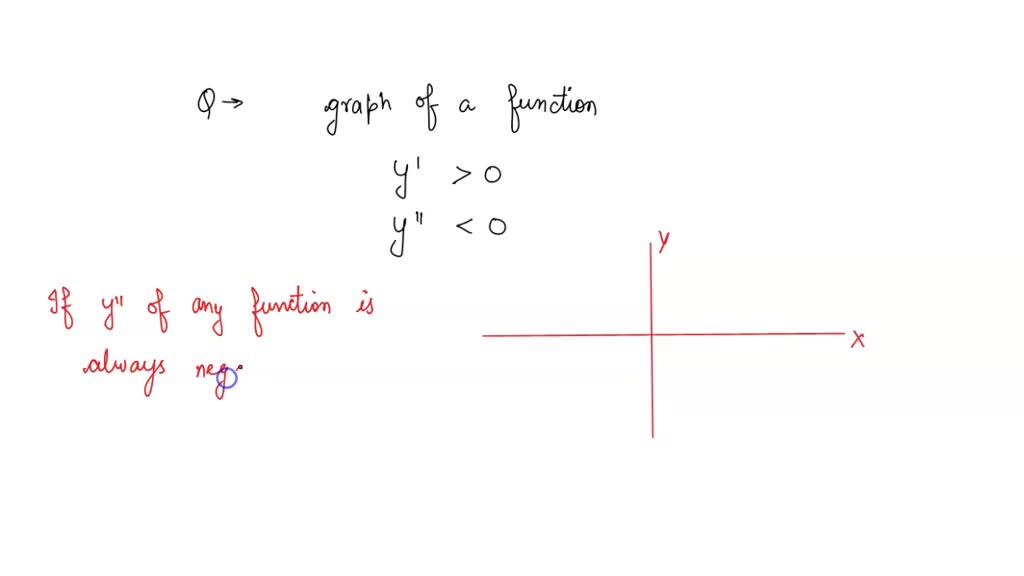 Q → graph of a function
y' > 0
y" < 0
y
If y" of any function is
x
always neg.